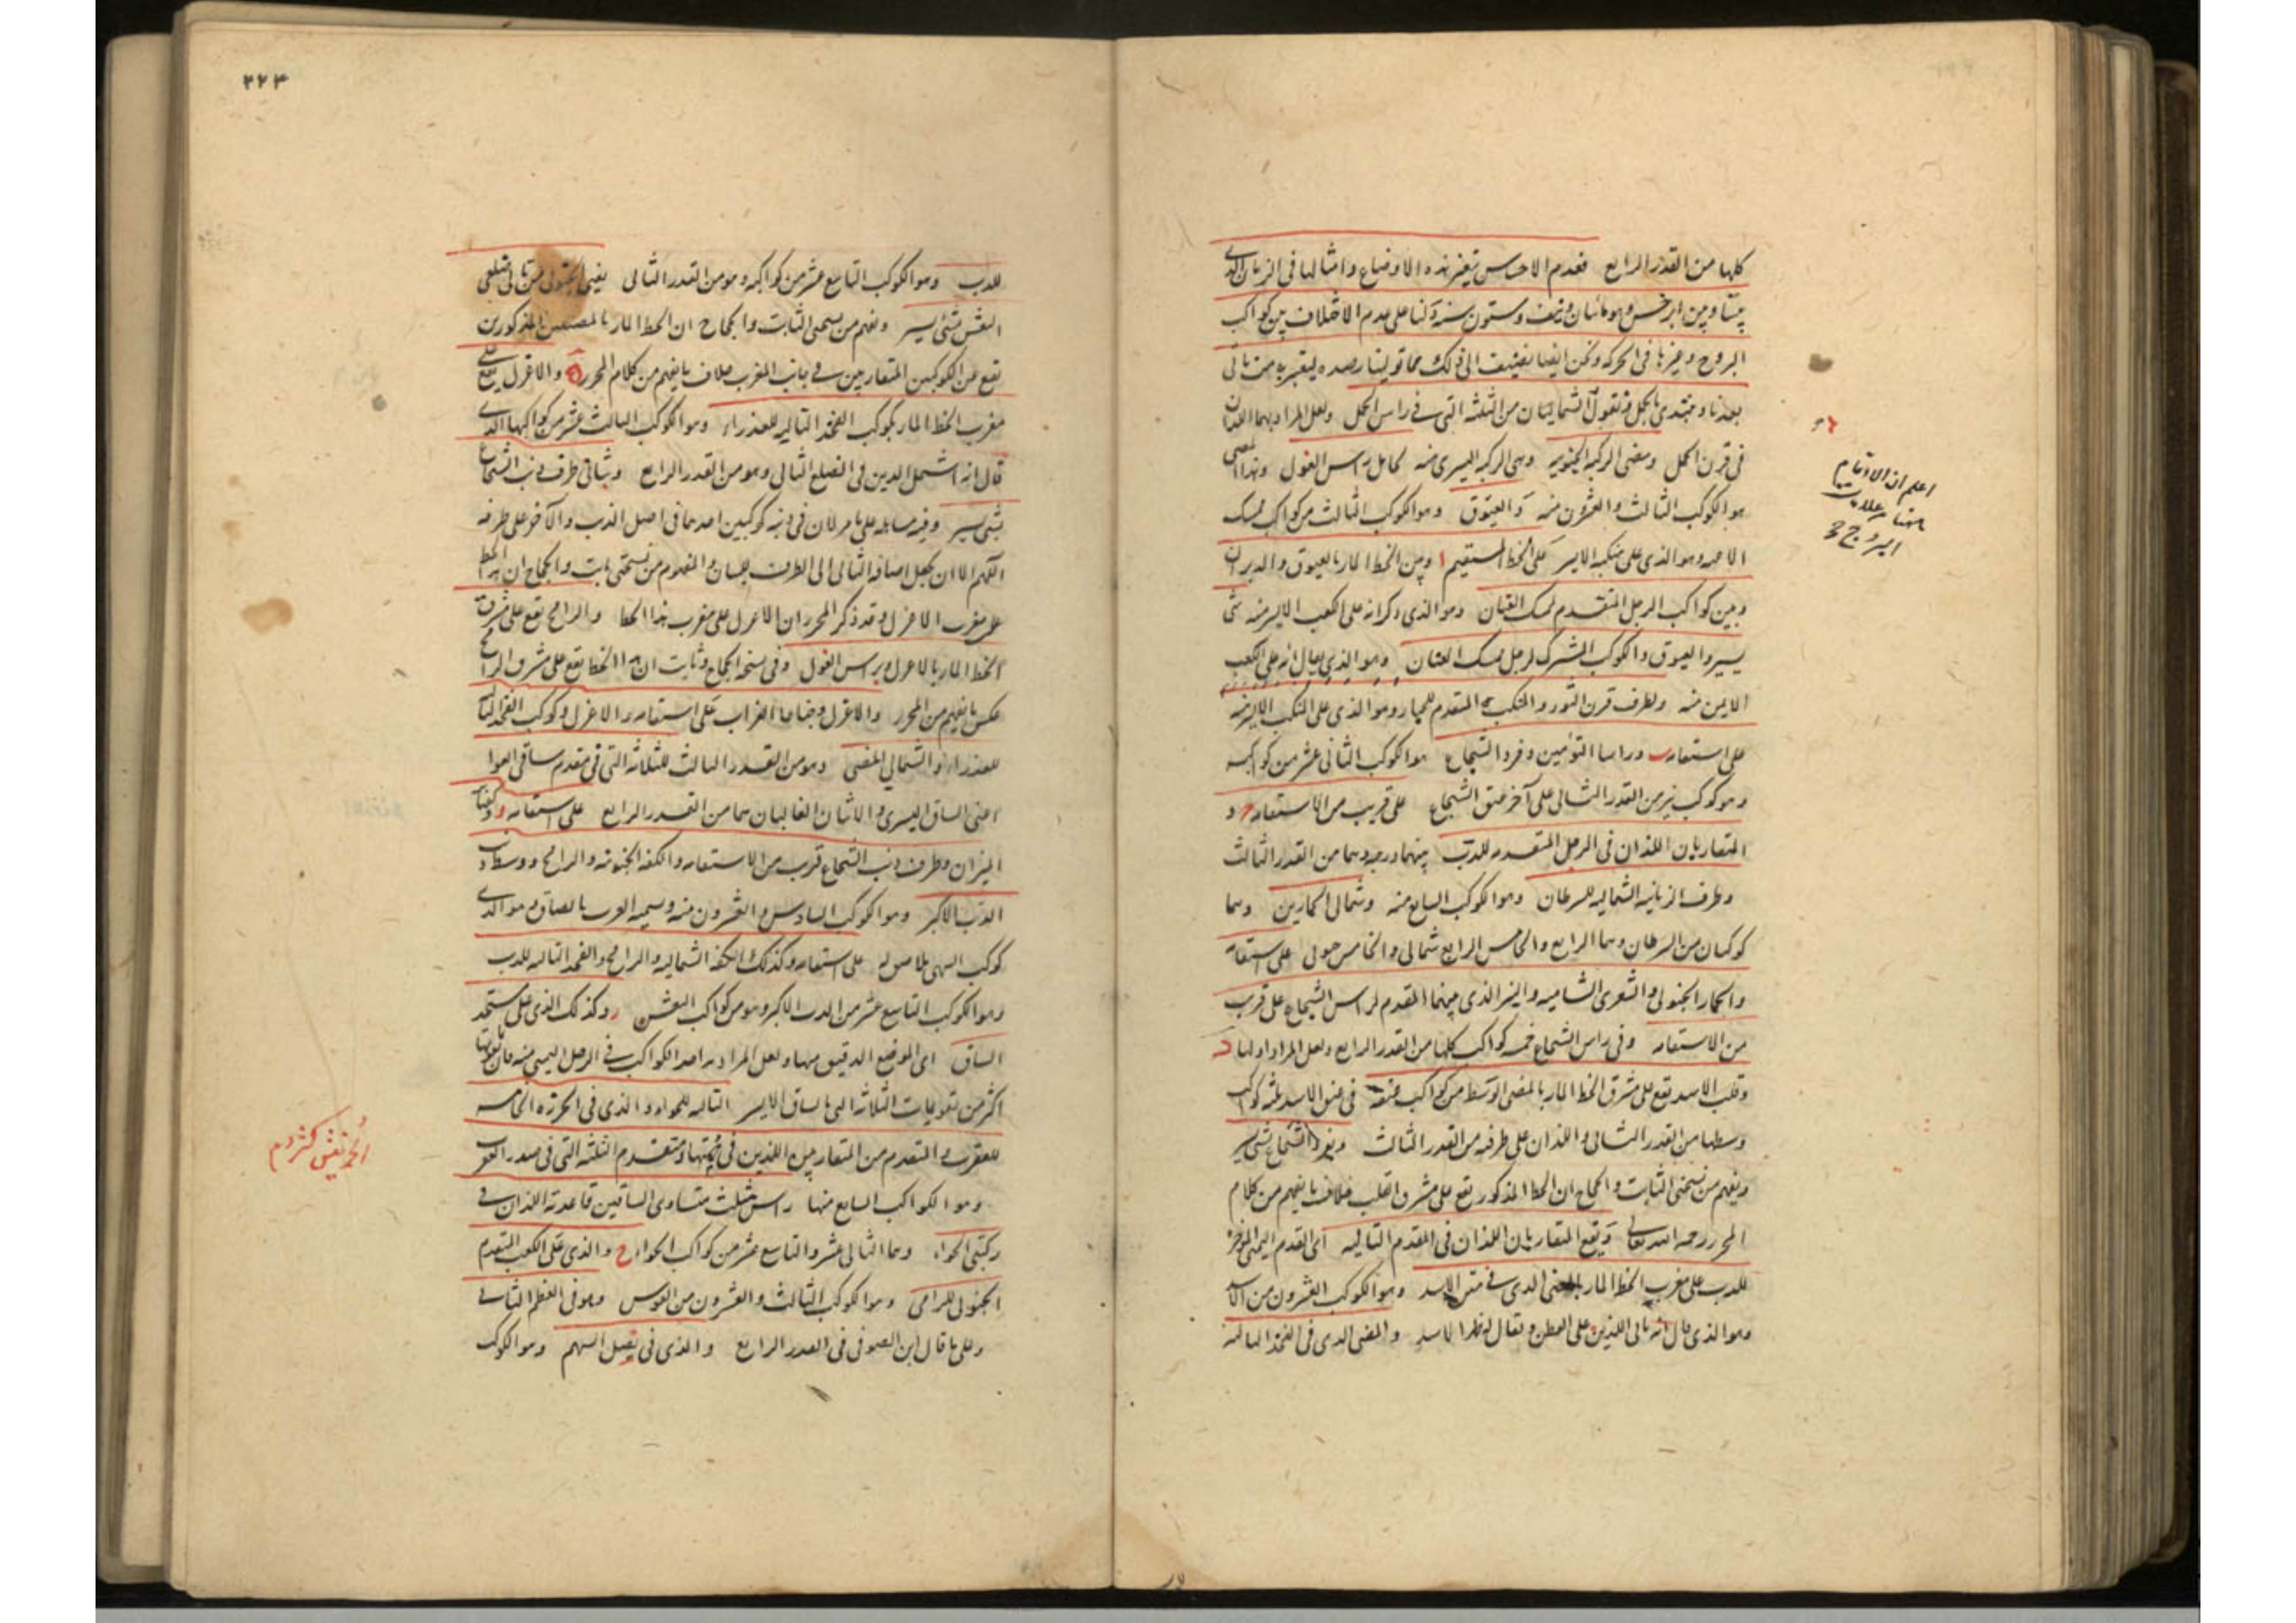 كلها من القدر الرابع فعدم الاحساس بتغير هذه الاوضاع وامثالها في الزمان الذي
بيننا وبين ابرخس وهو مائتان ونيف وستون سنة دلنا على عدم الاختلاف بين كواكب
البروج وغيرها في الحركة ونحن ايضا نضيف الى ذلك مما تولينا رصده ليعتبر به من ياتي
بعدنا ونبتدئ بالحمل فنقول الشماليتان من الثلثة التي في راس الحمل ولعل المراد بهما اللذان
في قرن الحمل ومضئ الركبة الجنوبية وهي الركبة اليسرى منه لحامل راس الغول وهذا المضئ
هو الكوكب الثالث والعشرون منه والعيوق وهو الكوكب الثالث من كواكب ممسك
الاعنة وهو الذي على منكبه الايسر على الخط المستقيم ا وبين الخط المار بالعيوق والدبران
وبين كواكب الرجل المتقدم لممسك العنان وهو الذي ذكر انه على الكعب الايسر منه شئ
يسير والعيوق والكوكب المشترك لرجل ممسك العنان وهو الذي يقال انه على الكعب
الايمن منه ولطرف قرن الثور والمنكب المتقدم للجبار وهو الذي على المنكب الايسر منه
على استقامة ب وراسا التوأمين وفرد الشجاع هو الكوكب الثاني عشر من كواكبه
وهو كوكب نير من القدر الثاني على آخر عنق الشجاع على قريب من الاستقامة ج و
المتقاربان اللذان في الرجل المتقدمة للدب بينهما درجة وهما من القدر الثالث
وطرف الزبانية الشمالية للسرطان وهو الكوكب السابع منه وشمالي الحمارين وهما
كوكبان من السرطان وهما الرابع والخامس الرابع شمالي والخامس جنوبي على استقامة
والحمار الجنوبي والشعرى الشامية والنير الذي بينهما المتقدم لراس الشجاع على قرب
من الاستقامة وفي راس الشجاع خمسة كواكب كلها من القدر الرابع ولعل المراد اولها د
وقلب الاسد يقع على مشرق الخط المار بالمضئ الاوسط من كواكب عنقه في عنق الاسد ثلثة كواكب
وسطها من القدر الثاني واللذان على طرفيه من القدر الثالث وبفرد الشجاع بشئ يسير
ويفهم من نسختي الثابت والحجاج ان الخط المذكور يقع على مشرق القلب خلاف ما يفهم من كلام
المحرر رحمه الله تعالى ويقع المتقاربان اللذان في القدم التالية اي القدم اليمنى المؤخرة
للدب على مغرب الخط المار بالمضئ الذي في متن الاسد وهو الكوكب العشرون من الاسد
وهو الذي قال انه تالي اللذين على البطن ويقال له ظهر الاسد والمضئ الذي في الفخذ التالية
اعلم ان الارقام
البروج
٢٢٣
للدب وهو الكوكب التاسع عشر من كواكبه وهو من القدر الثاني
النعش بشئ يسير ويفهم من نسختي الثابت والحجاج ان الخط المار بالمضيئين المذكورين
يقع عن الكوكبين المتقاربين في جانب المغرب خلاف ما يفهم من كلام المحرر ه والاعزل يقع على
مغرب الخط المار بكوكب الفخذ التالية للعذراء وهو الكوكب الثالث عشر من كواكبها الذي
قال انه اشمل الذين في الضلع التالي وهو من القدر الرابع وبثاني طرف ذنب الشجاع
بشئ يسير وفيه مساهلة على ما مر لان في ذنبه كوكبين احدهما في اصل الذنب والآخر على طرفه
اللهم الا ان يجعل اضافة الثاني الى الطرف للبيان والمفهوم من نسختي ثابت والحجاج ان هذا الخط
على مغرب الاعزل وقد ذكر المحرر ان الاعزل على مغرب هذا الخط والرامح يقع على مشرق
الخط المار بالاعزل وبراس الغول وفي نسخة الحجاج وثابت ان هذا الخط يقع على مشرق الرامح
عكس ما يفهم من المحرر والاعزل وجناحا الغراب على استقامة والاعزل وكوكب الفخذ التالية
للعذراء والشمالي المضئ وهو من القدر الثالث للثلاثة التي في مقدم ساقي العوا
اعني الساق اليسرى والاثنان الغالبان هما من القدر الرابع على استقامة و وكفتا
الميزان وطرف ذنب الشجاع قرب من الاستقامة والكفة الجنوبية والرامح ووسط ذنب
الدب الاكبر وهو الكوكب السادس والعشرون منه ويسميه العرب بالعناق وهو الذي
كوكب السهى ملاصق له على استقامة وكذلك الكفة الشمالية والرامح والفخذ التالية للدب
وهو الكوكب التاسع عشر من الدب الاكبر وهو من كواكب النعش ز وكذلك الذي على مستدق
الساق اي الموضع الدقيق منها ولعل المراد به احد الكواكب في الرجل اليمنى منه فان تقويمها
اكثر من تقويمات الثلاثة التي بالساق الايسر التالية للحواء والذي في الخرزة الخامسة
للعقرب والمتقدم من المتقاربين اللذين في حمتها ومتقدم الثلثة التي في صدر العقرب
وهو الكواكب السابع منها راس مثلث متساوي الساقين قاعدته اللذان في
ركبتي الحواء وهما الثاني عشر والتاسع عشر من كواكب الحواء ح والذي على الكعب المتقدم
الجنوبي للرامي وهو الكوكب الثالث والعشرون من القوس وهو في العظم الثاني
وعلى ما قال ابن الصوفي في القدر الرابع والذي في نصل السهم وهو الكوكب